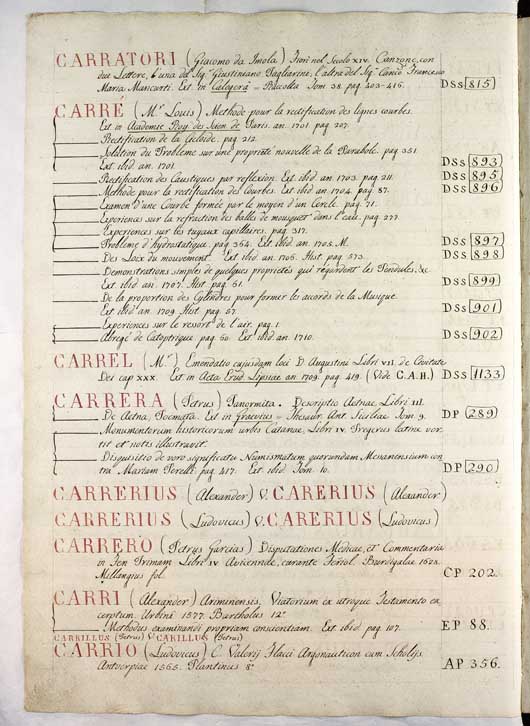 CARRATORI (Giacomo da Imola) Fiorì nel Secolo XIV. Canzone, con
due Lettere, una del Sig.r Giustiniano Pagliarini; l'altra del Sig.r Canco. Francesco
Maria Mancurti. Ext. in Calogerà = Raccolta Tom. 38. pag. 403-416. DSS 815
CARRÉ (Mr. Louis) Methode pour la rectification des lignes courbes.
Ext. in Academie Roy. des Scien. de Paris. an. 1701. pag. 207.
Rectification de la Cicloide. pag. 212.
Solution du Probleme sur une proprieté nouvelle de la Parabole. pag. 351.
Ext. ibid an. 1701. DSS 893
Rectification des Caustiques par reflexion. Ext. ibid an. 1703. pag. 211. DSS 895
Methode pour la rectification des Courbes. Ext. ibid. an. 1704. pag. 87. DSS 896
Examen d'une Courbe formée par le moyen d'un Cercle. pag. 71.
Experiences sur la refraction des balles de mousquet dans l'eau. pag. 277.
Experiences sur les tuyaux capillaires. pag. 317.
Probleme d'hydrostatique pag. 364. Ext. ibid an. 1705. M. DSS 897
Des Loix du mouvement. Ext. ibid an. 1706. Hist. pag. 573. DSS 898
Demonstrations simples de quelques proprietés qui regardent les Pendules, &c.
Ext. ibid an. 1707. Hist. pag. 61. DSS 899
De la proportion des Cylindres pour former les accords de la Musique.
Ext. ibid an. 1709. Hist. pag. 67. DSS 901
Experiences sur le ressort de l'air. pag. 1.
Abregé de Catoptrique pag. 60. Ext. ibid an. 1710. DSS 902
CARREL (Mr.) Emendatio cujusdam loci D. Augustini Libri VII. de Civitate
Dei cap. XXX. Ext. in Acta Erud. Lipsiae an. 1709. pag. 419. (Vide C.A.H.) DSS 1133
CARRERA (Petrus) Panormita. Descriptio Aetnae, Libri III.
De Aetna, Poemata. Ext. in Graevius = Thesaur. Ant. Siciliae Tom. 9. DP 289
Monumentorum historicorum urbis Catanae, Libri IV. Pregerus latine ver-
tit et notis illustravit.
Disquisitio de vero significatu Numismatum quorundam Messanensium con-
tra Mariam Perelli. pag. 417. Ext. ibid Tom. 10. DP 290
CARRERIUS (Alexander) V. CARERIUS (Alexander)
CARRERIUS (Ludovicus) V. CARERIUS (Ludovicus)
CARRERO (Petrus Garcias) Disputationes Medicae, et Commentaria
in Fen Primam Libri IV Avicennae, curante Ferriol. Burdigalae 1628.
Millangius fol. CP 202.
CARRI (Alexander) Ariminensis. Viatorium ex utroque Testamento ex-
cerptum. Urbini 1577. Bartholus 12°
Methodus examinandi propriam conscientiam. Ext. ibid pag. 107. EP 88.
CARRILLUS (Petrus) V. CARILLUS (Petrus)
CARRIO (Ludovicus) C. Valerij Flacci Argonauticon cum Scholijs
Antverpiae 1565. Plantinus 8° AP 356.